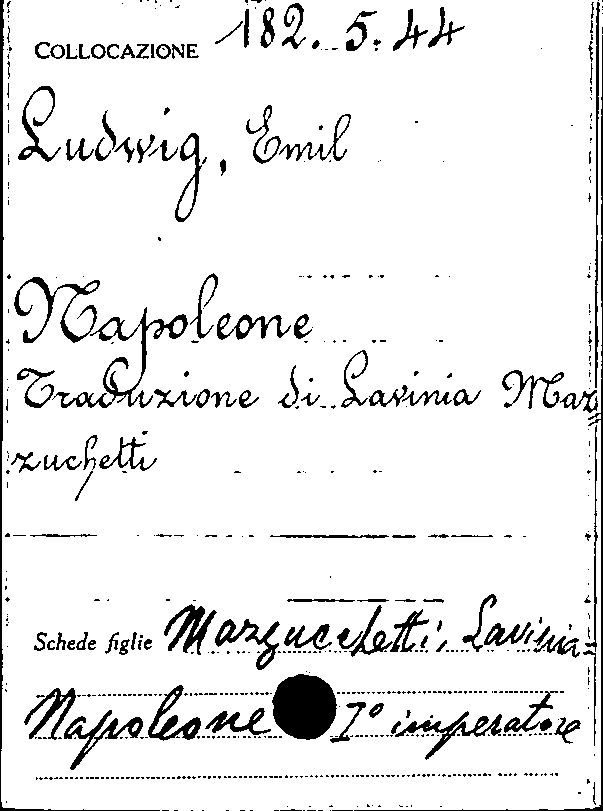 COLLOCAZIONE 182. 5. 44
Ludwig, Emil
Napoleone
Traduzione di Lavinia Maz=
zuchetti
Schede figlie Mazzucchetti, Lavinia=
Napoleone I° imperatore